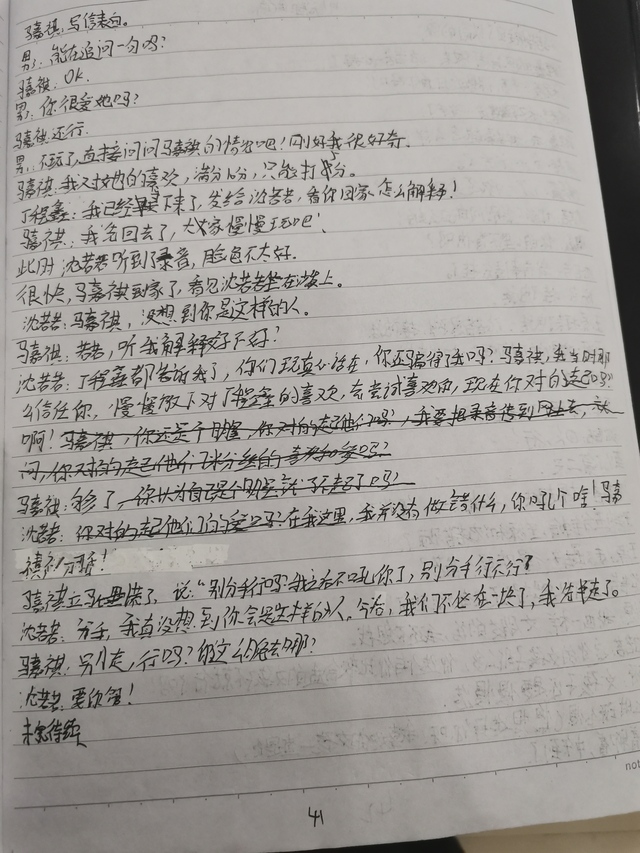 马嘉祺:写信表白。
男:能在追问一句吗?
马嘉祺:OK.
男:你很爱她吗?
马嘉祺:还行.
男:不玩了,直接问问马嘉祺的情史吧!刚好我很好奇.
马嘉祺:我对她的喜欢,满分10分,只能打分.
丁程鑫:我已经录下来了,发给沈若若,看你回家怎么解释!
马嘉祺:我先回去了,大家慢慢玩吧!
此时沈若若听到了录音,脸色不太好.
很快,马嘉祺到家了,看见沈若若坐在沙发上。
沈若若:马嘉祺,没想到你是这样的人。
马嘉祺:若若,听我解释好不好?
沈若若:丁程鑫都告诉我了,你们玩真心话在,你还骗得了我吗?马嘉祺,我当时那
么信任你,慢慢放下对丁程鑫的喜欢,去尝试喜欢你,现在你对的起吗?
啊!马嘉祺,你还是个明星,你对的起他们吗?我要把录音传到网上去,
问,你对的起他们
马嘉祺:够了,你认为自己是个明星就了不起了吗?
沈若若:你对的起他们的爱吗?在我这里,我并没有做错什么,你吼个啥!马嘉
祺,分手!
马嘉祺立马慌了,说:“别分手行吗?我之后不吼你了,别分手行不行?
沈若若:分手,我真没想到你会是这样的人,今后,我们不必在一块了,我先走了。
马嘉祺:别走,行吗?那这么晚去哪?
沈若若:要你管!
未完待续
not
41